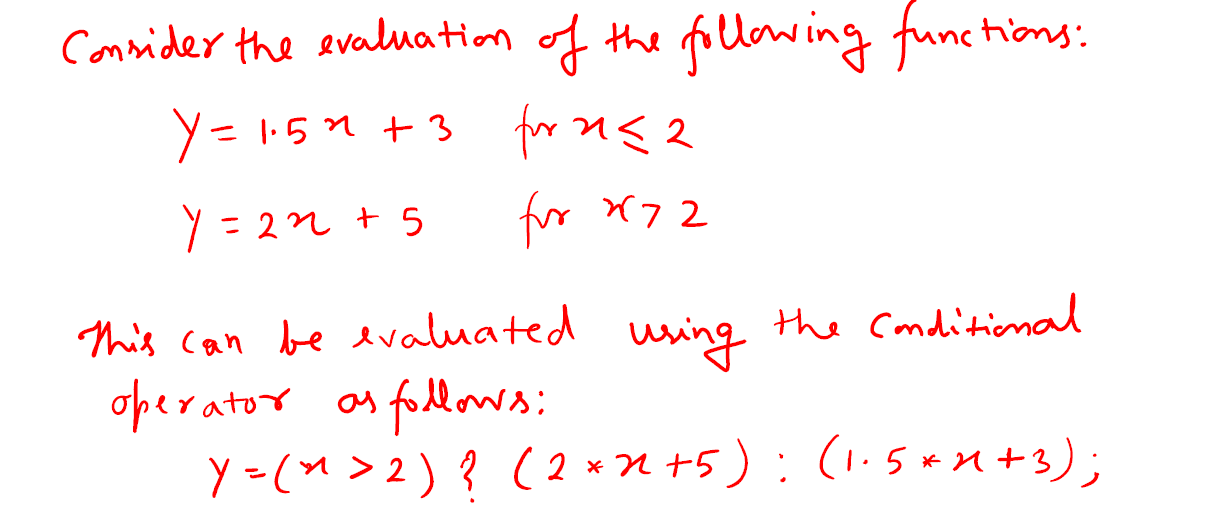 Consider the evaluation of the following functions:
y = 1.5x + 3 for x ≤ 2
y = 2x + 5 for x > 2
This can be evaluated using the conditional
operator as follows:
y = (x > 2) ? (2 * x + 5) : (1.5 * x + 3);